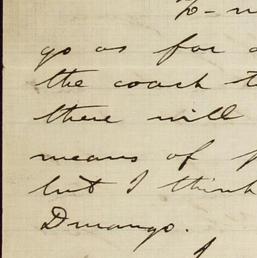 go as far a
the coach t
there will
means of
but I think
Durango.